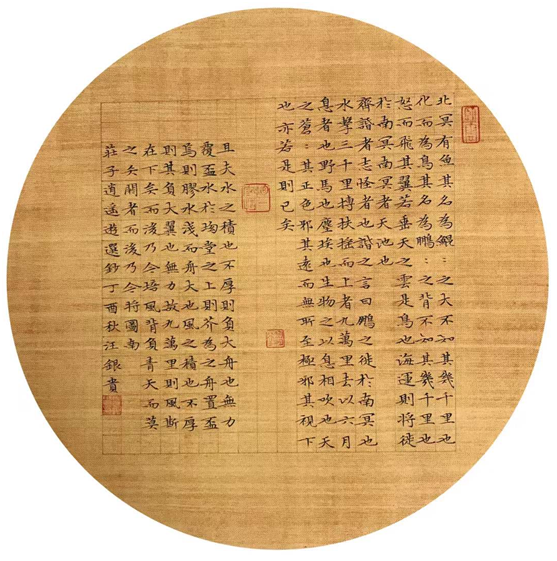 北冥有魚其名為鯤：之大不知其幾千里也
化而為鳥其名為鵬：之背不知其幾千里也
怒而飛其翼若垂天之雲是鳥也海運則將徙
於南冥南冥者天池也
齊諧者志怪者也諧之言曰鵬之徙於南冥也
水擊三千里摶扶搖而上者九萬里去以六月
息者也野馬也塵埃也生物之以息相吹也天
之蒼：其正色邪其遠而無所至極邪其視下
也亦若是則已矣
且夫水之積也不厚則負大舟也無力
覆盃水於坳堂之上則芥為之舟置盃
焉則膠水淺而舟大也風之積也不厚
則其負大翼也無力故九萬里則風斯
在下矣而後乃今培風背負青天而莫
之夭閼者而後乃今將圖南
莊子逍遙遊選鈔丁酉秋汪銀貴